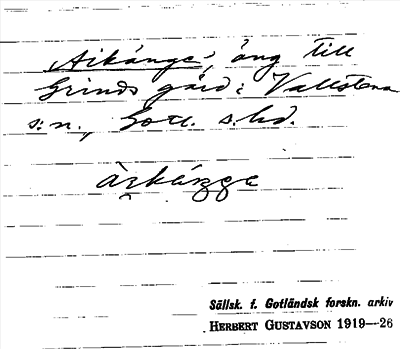 Aikänge, äng till
Grinds gård i Vallstena
s:n., Gotl. s:hd.
àrkä́ngge
Sällsk. f. Gotländsk forskn. arkiv
HERBERT GUSTAVSON 1919—26